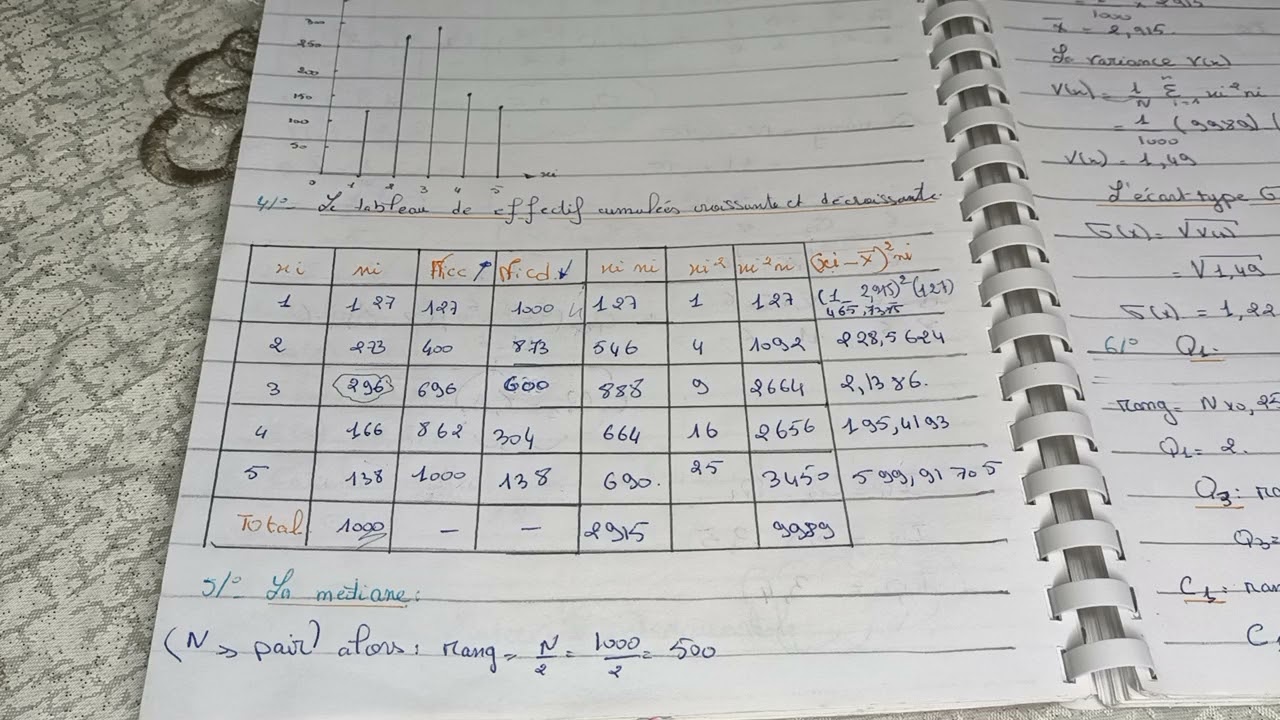 300
250
200
150
100
50
0 1 2 3 4 5 xi
4/°- Le tableau de effectif cumulées croissante et décroissante.
xi ni Nicc↑ Nicd↓ xi ni xi² xi²ni (xi-x̄)²ni
1 127 127 1000 127 1 127 (1_2,915)²(127)
465,7375
2 273 400 873 546 4 1092 228,5624
3 296 696 600 888 9 2664 2,1386.
4 166 862 304 664 16 2656 195,4193
5 138 1000 138 690. 25 3450 599,91705
Total 1000 - - 2915 9989
5/°- La mediane:
(N → pair) alors: rang = N/2 = 1000/2 = 500
1000
x̄ = 2,915.
La variance V(x)
V(x) = 1/N Σ xi²ni
= 1/1000 (9989) (
V(x) = 1,49
L'écart type σ
σ(x) = √V(x)
= √1,49
σ(x) = 1,22
6/° Q1.
rang = N x0,25
Q1 = 2.
Q3:
Q3=
C1:
C